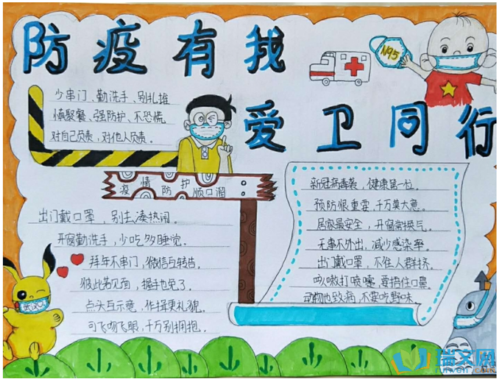 防疫有我
N95
爱卫同行
少串门、勤洗手、别扎堆
慎聚餐、强防护、不恐慌
对自己负责、对他人负责。
疫情防护顺口溜
出门戴口罩,别往凑热闹。
开窗勤洗手,少吃多睡觉。
拜年不串门,微信与转告。
彼此若见面,握手也免了。
点头互示意,作揖更礼貌。
可飞吻飞眼,千万别拥抱。
新冠病毒袭,健康第一位。
预防很重要,千万莫大意。
居家最安全,开窗需换气。
无事不外出,减少感染率。
出门戴口罩,不往人群挤。
咳嗽打喷嚏,要捂住口
动物也致病,不要吃野味。